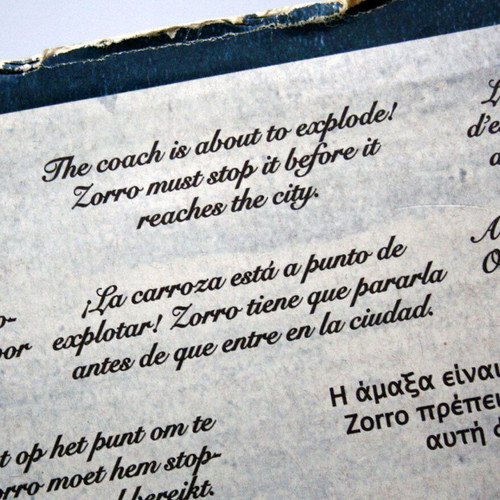 The coach is about to explode!
Zorro must stop it before it
reaches the city.
¡La carroza está a punto de
explotar! Zorro tiene que pararla
antes de que entre en la ciudad.
op het punt om te
moet hem stop-
bereikt.
Η άμαξα είναι
Zorro πρέπει
αυτή
d'e